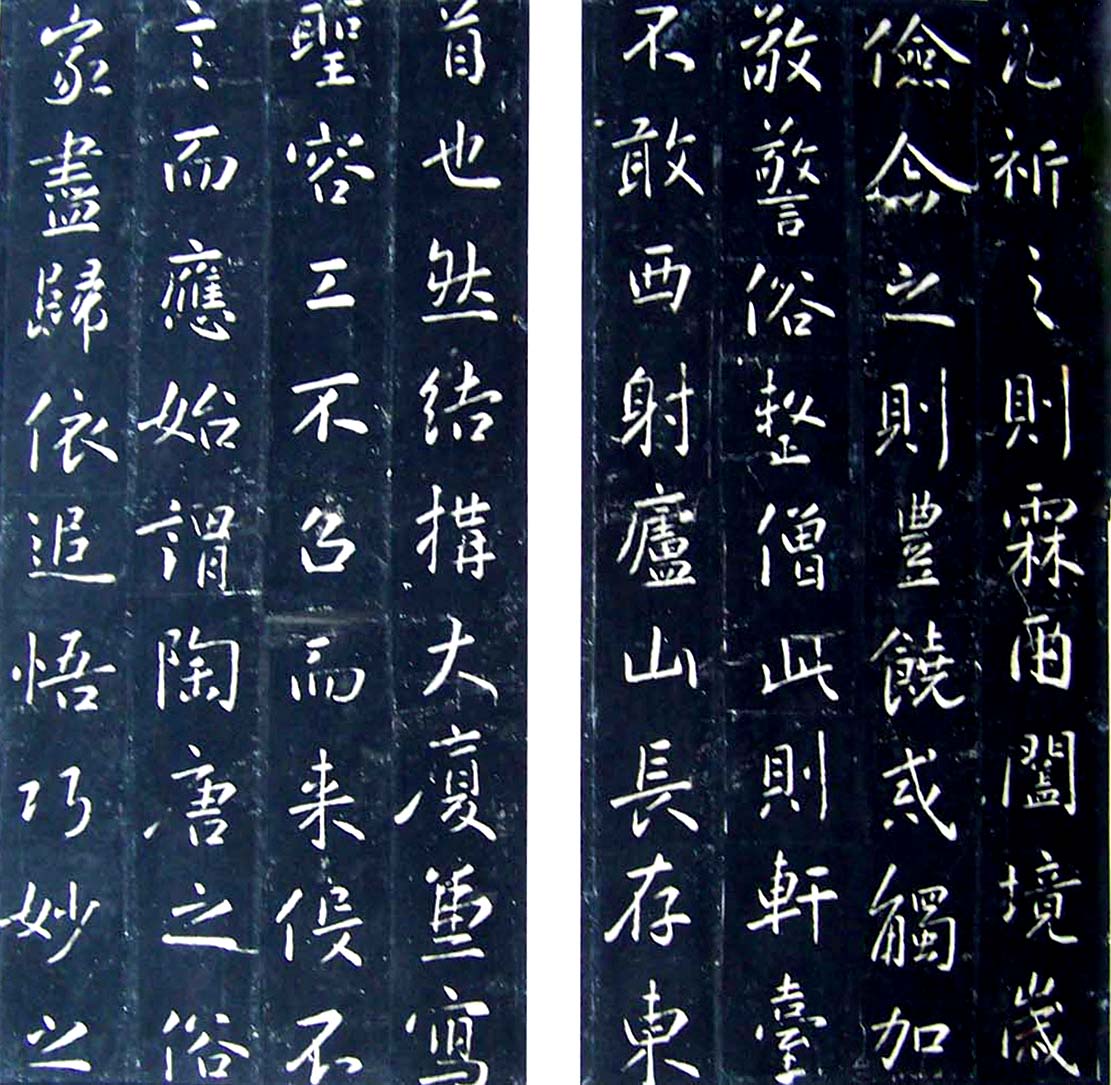 凡祈之則霖雨闔境歲
儉念之則豐饒或觸加
敬警俗整僧此則軒臺
不敢西射廬山長存東
首也然結搆大廈寫
聖容工不召而来候不
言而應始謂陶唐之俗
家盡歸依追悟巧妙之